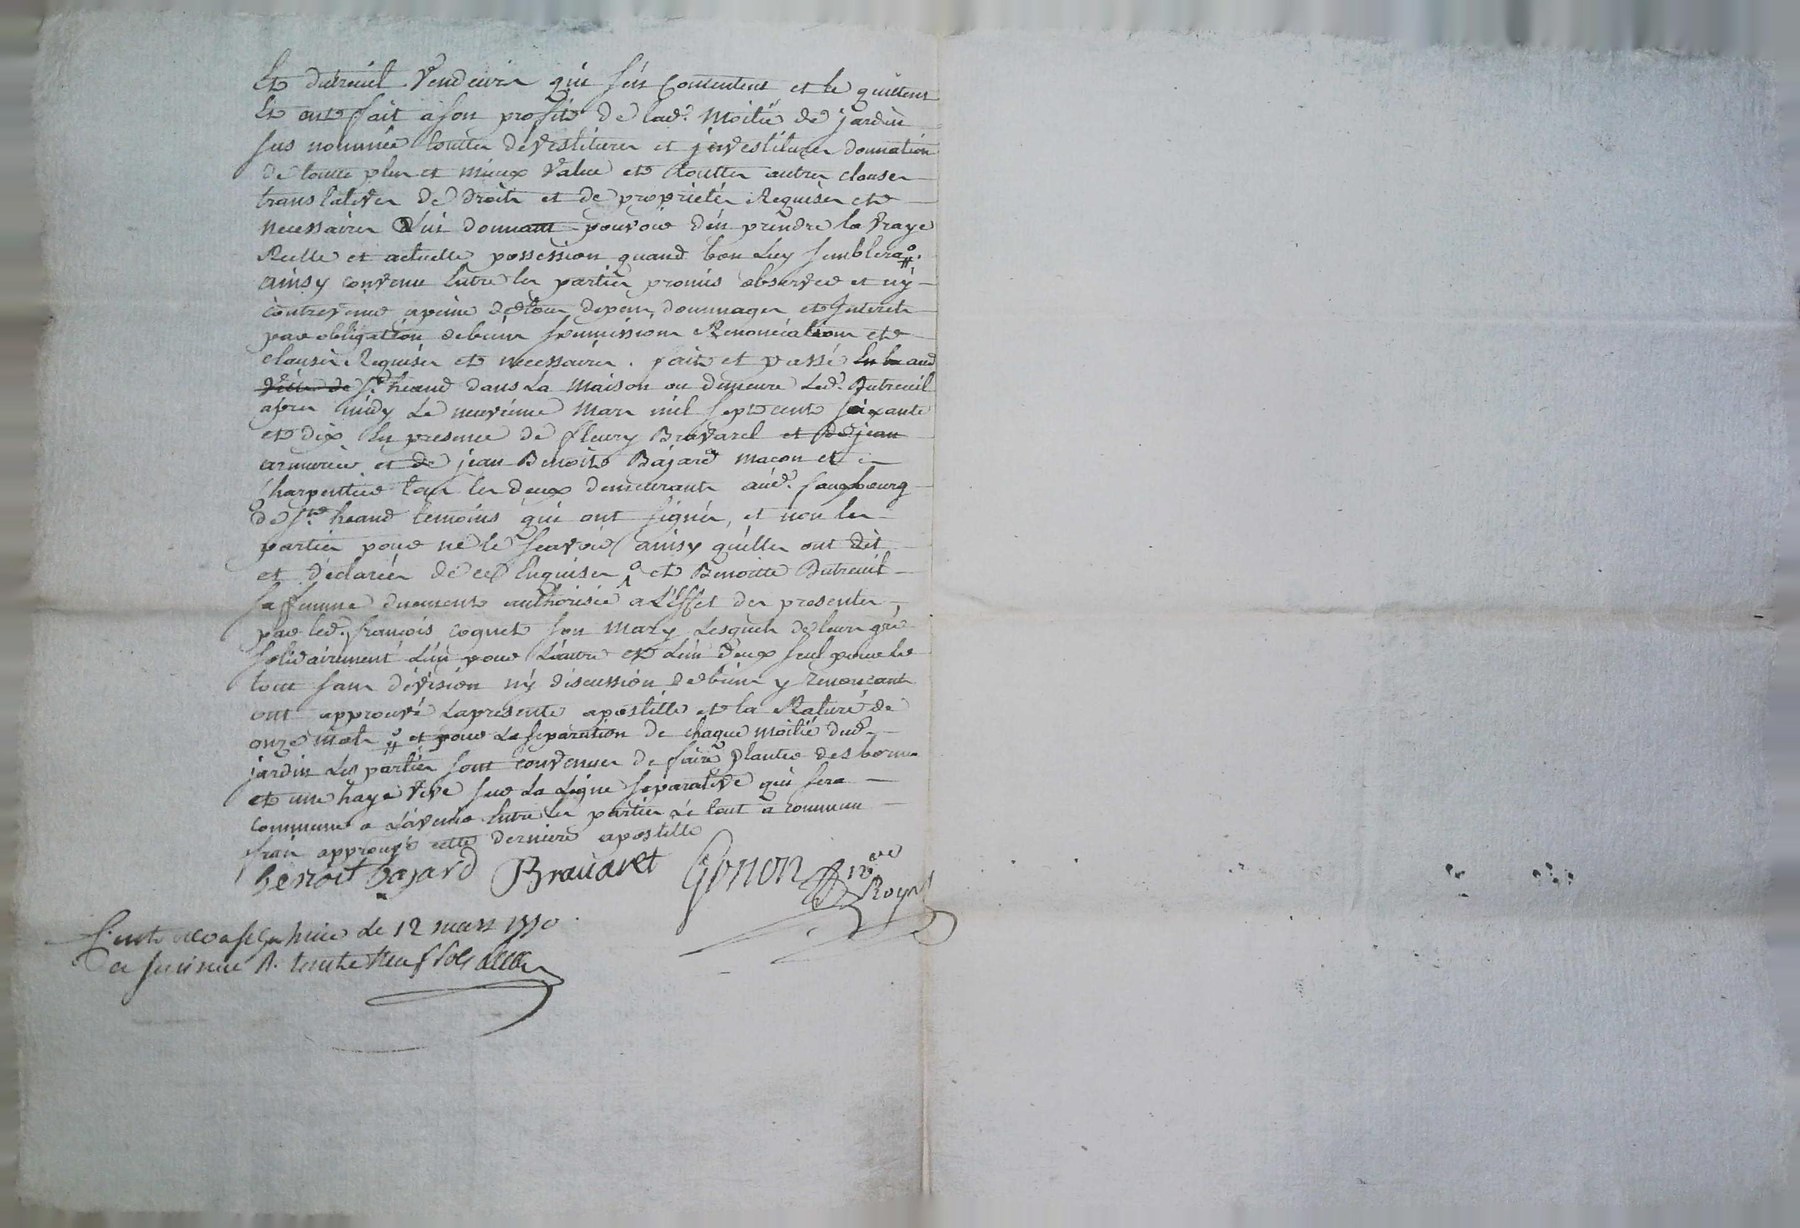 et dutreuil Vendeurs qui s'en Contentent et le quittent
Et ont fait a son profit de lad. Moitié de jardin
sus nommée touttes devestitures et jnvestitures donnation
de toutte plus et mieux Value et touttes autres clauses
translatives de droits et de proprietés Requises et
necessaires Lui donnant pouvoir d'en prendre la Vraye
Reelle et actuelle possession quand bon Luy semblera
ainsy convenu Entre les parties promis observer et n'y
contrevenir a peine de tous depens dommages et Interets
par obligation de biens soumissions Renonciations et
clauses Requises et necessaires . fait et passé
St. heand dans La Maison ou demeure Led. Dutreuil
apres midy Le neuvieme Mars mil sept cent soixante
et dix En presence de fleury Bravarel et de jean
armurier et de jean Benoit Bajard macon et
Charpentier tous les deux demeurants aud. fauxbourg
de St. heand temoins qui ont signés, et non les
parties pour ne le scavoir ainsy qu'elles ont dit
et declarées de ce Enquises et Benoitte Dutreuil
sa femme duement authorisée a L'effet des presentes
par led. françois coquet son Mary Lesquels de leurs gré
solidairement L'un pour L'autre et L'un d'eux seul pour le
tout sans division ny discussion de biens y renoncant
ont approuvé La presente apostille et la Rature de
onze mots et pour La separation de chaque moitié dud.
jardin Les parties sont convenues de faire planter des bornes
et une haye vive sur La Ligne separative qui sera
commune a L'avenir Entre les parties Le tout a commun
frais approuvé cette derniere apostille
benoit bajard Bravaret Gonon
Roy
le 12 mars 1770
trente neuf sols